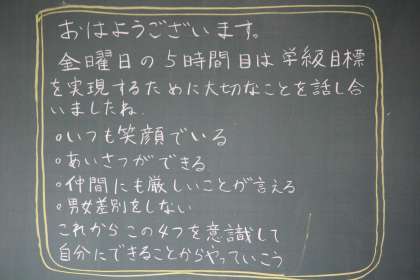 おはようございます。
金曜日の5時間目は学級目標
を実現するために大切なことを話し合
いましたね.
○いつも笑顔でいる
○あいさつができる
○仲間にも厳しいことが言える
○男女差別をしない
これからこの4つを意識して
自分にできることからやっていこう